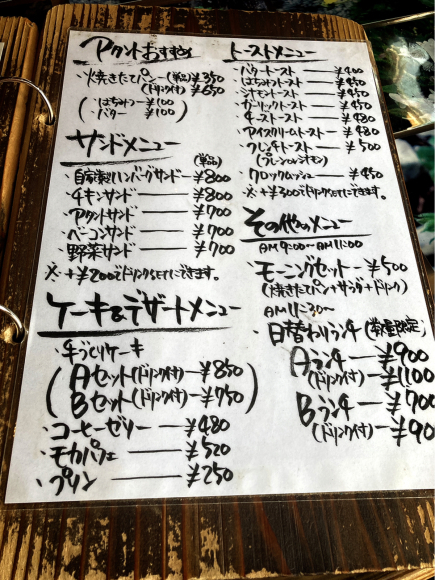 アタントおすすめ
・焼きたてパン(単品)¥350
(ドリンク付)¥650
(・はちみつ ー ¥100
・バター ー ¥100)
サンドメニュー
(単品)
・自家製ハンバーグサンドー¥800
・チキンサンド ー ¥800
・アタントサンド ー ¥700
・ベーコンサンド ー ¥700
・野菜サンド ー ¥700
※・+¥200でドリンクSETにできます。
ケーキ&デザートメニュー
・手づくりケーキ
(Aセット(ドリンク付)ー¥850
Bセット(ドリンク付)ー¥750)
・コーヒーゼリー ー ¥480
・モカパフェ ー ¥520
・プリン ー ¥250
トーストメニュー
・バタートースト ー ¥400
・はちみつトースト ー ¥450
・シナモントースト ー ¥450
・ガーリックトースト ー ¥450
・チーズトースト ー ¥480
・アイスクリームトースト ー ¥480
・フレンチトースト ー ¥500
(プレーンorシナモン)
・クロックムッシュ ー ¥450
※・+¥300でドリンクSETにできます。
その他のメニュー
AM9:00〜AM11:00
・モーニングセット ー ¥500
(焼きたてパン+サラダ+ドリンク)
AM11:30〜
・日替わりランチ(数量限定)
Aランチ ー ¥900
(ドリンク付)ー¥1100
Bランチ ー ¥700
(ドリンク付)ー¥90